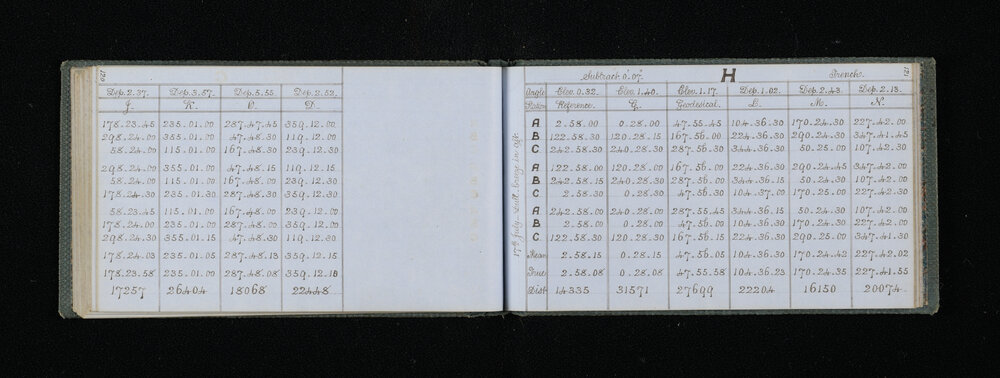 120
Dep. 2.37. Dep. 3.57. Dep. 5.55 Dep. 2.52.
J. K. D.
178.23.45 235.01.00 287.47.45 359.12.00
298.24.00 355.01.00 47.48.30 119.12.00
58.24.00 115.01.00 167.48.30 239.12.30
298.24.00 355.01.00 47.48.15 119.12.15
58.24.00 115.01.00 167.48.00 239.12.30
178.24.30 235.01.30 287.48.30 359.12.30
58.23.45 115.01.00 167.48.00 239.12.00
178.24.00 235.01.00 287.48.00 359.12.00
298.24.30 355.01.15 47.48.30 119.12.30
178.24.03 235.01.05 287.48.13 359.12.15
178.23.58 235.01.00 287.48.08 359.12.10
17257 26404 18068 22448
17th July. in aft.
121
Subtract 0'.07". H Trench.
Angle Elev. 0.32. Elev. 1.40. Elev. 1.17. Dep. 1.02. Dep. 2.43. Dep. 2.13.
Reference. G. Geodesical. L. M. N.
A 2.58.00 0.28.00 47.55.45 104.36.30 170.24.30 227.42.00
B 122.58.30 120.28.15 167.56.00 224.36.30 290.24.30 347.41.45
C 242.58.30 240.28.30 287.56.30 344.36.30 50.25.00 107.42.30
A 122.58.00 120.28.00 167.56.00 224.36.30 290.24.45 347.42.00
B 242.58.15 240.28.30 287.56.00 344.36.30 50.24.30 107.42.00
C 2.58.30 0.28.30 47.56.30 104.37.00 170.25.00 227.42.30
A 242.58.00 240.28.00 287.55.45 344.36.15 50.24.30 107.42.00
B 2.58.00 0.28.00 47.56.00 104.36.30 170.24.30 227.42.00
C 122.58.30 120.28.30 167.56.15 224.36.30 290.25.00 347.41.30
Mean 2.58.15 0.28.15 47.56.05 104.36.30 170.24.42 227.42.02
True 2.58.08 0.28.08 47.55.58 104.36.23 170.24.35 227.41.55
Dist 14335 31571 27699 22204 16150 20074